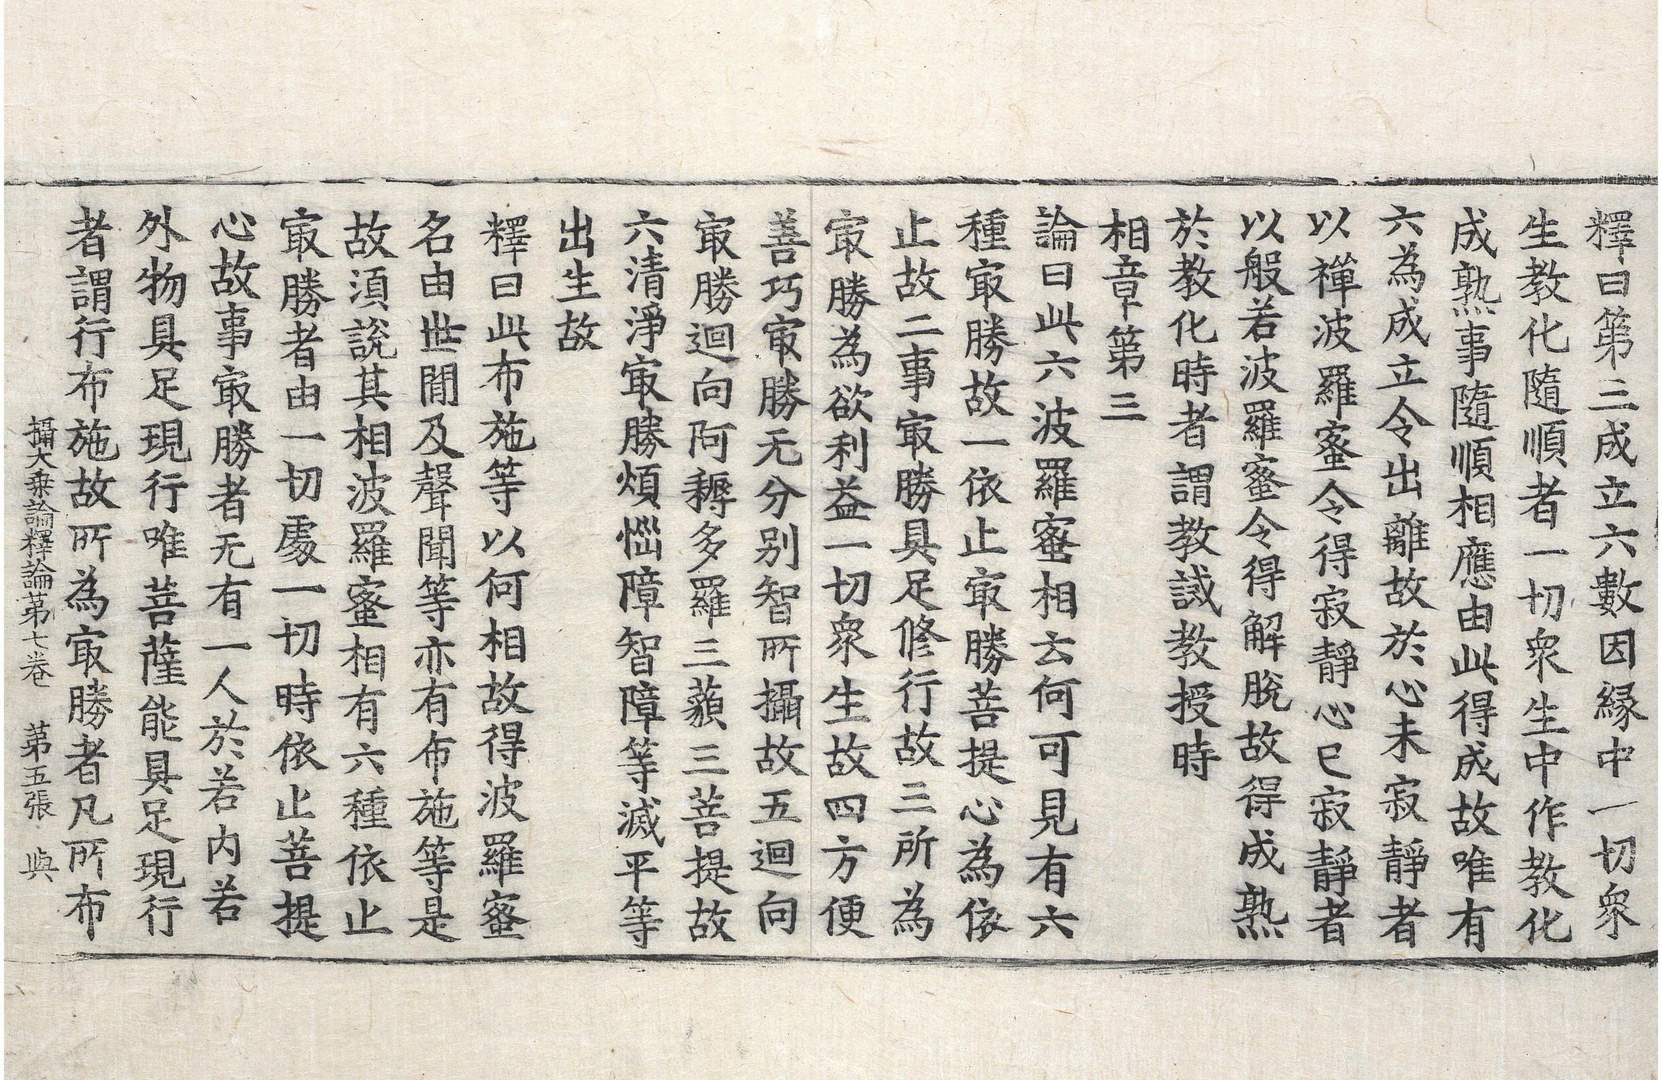 釋曰第三成立六數因緣中一切衆
生教化隨順者一切衆生中作教化
成熟事隨順相應由此得成故唯有
六為成立令出離故於心未寂靜者
以禪波羅蜜令得寂靜心已寂靜者
以般若波羅蜜令得解脫故得成熟
於教化時者謂教誡教授時
相章第三
論曰此六波羅蜜相云何可見有六
種㝡勝故一依止㝡勝菩提心為依
止故二事㝡勝具足修行故三所為
㝡勝為欲利益一切衆生故四方便
善巧㝡勝无分别智所攝故五迴向
㝡勝迴向阿耨多羅三藐三菩提故
六清淨㝡勝煩惱障智障等滅平等
出生故
釋曰此布施等以何相故得波羅蜜
名由世間及聲聞等亦有布施等是
故須說其相波羅蜜相有六種依止
㝡勝者由一切處一切時依止菩提
心故事㝡勝者无有一人於若内若
外物具足現行唯菩薩能具足現行
者謂行布施故所為㝡勝者凡所布
攝大乗論釋論第七卷　第五張　與